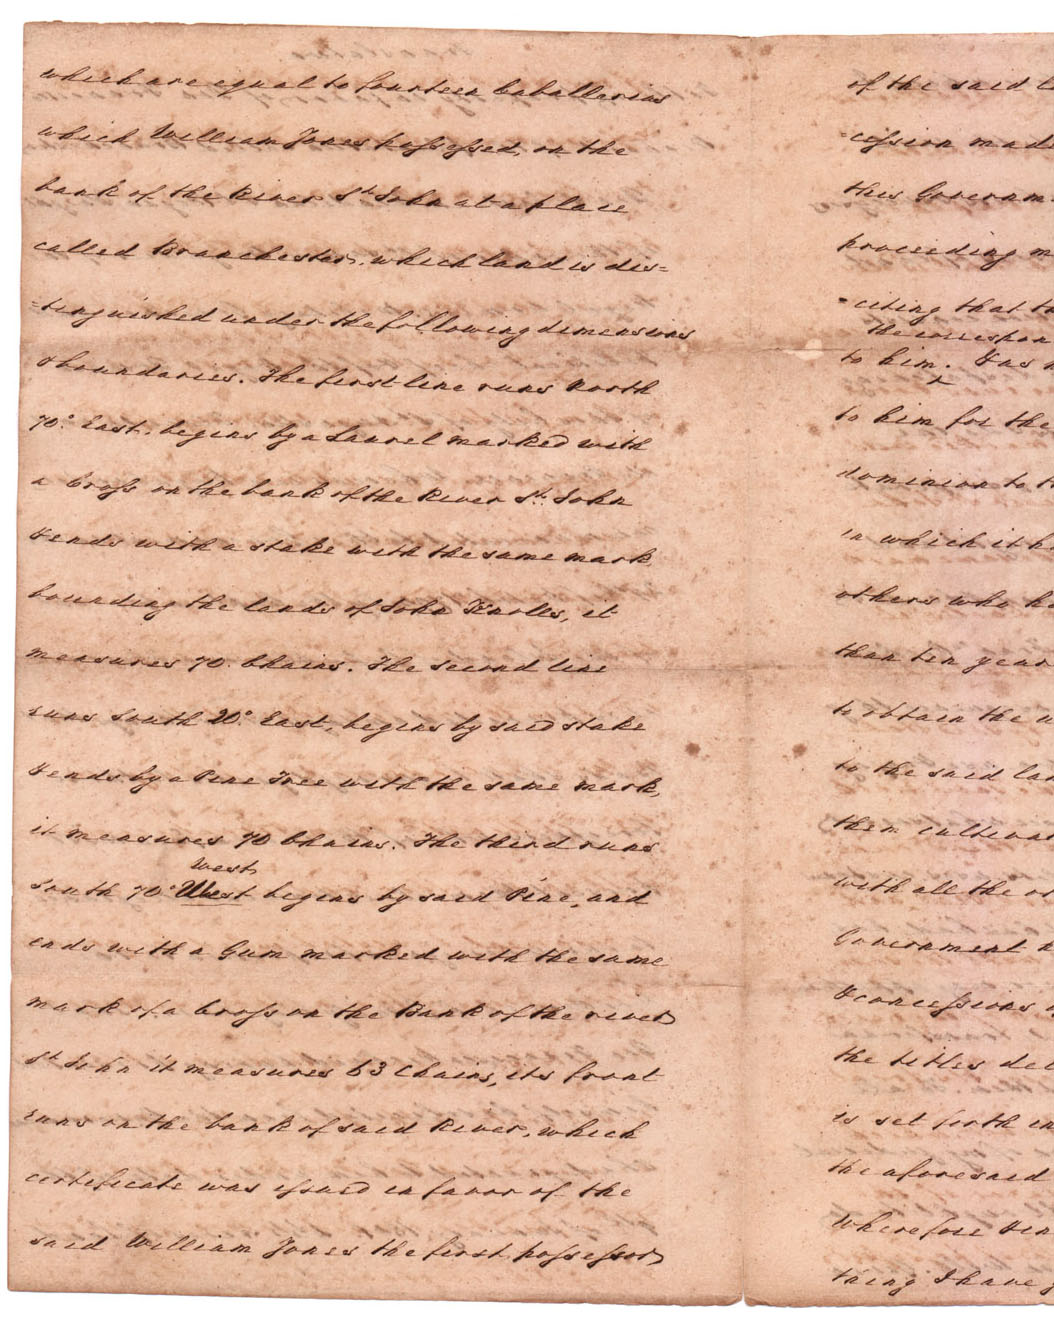 which are equal to fourteen Caballerias
which William Jones possessed, on the
bank of the River St. John at a place
called Branchester, which land is dis=
=tinguished under the following dimensions
& boundaries. The first line runs North
70.° East, begins by a Laurel marked with
a Cross on the bank of the River St. John
& ends with a stake with the same mark
bounding the lands of John Knolls, it
measures 70. Chains. The second line
runs South 20.° East, begins by said stake
& ends by a Pine Tree with the same mark,
it measures 70 Chains. The third runs
West
South 70° West begins by said Pine, and
ends with a Gum marked with the same
mark of a Cross on the Bank of the river
St. John it measures 63 Chains, its front
runs on the bank of said River, which
certificate was issued in favor of the
said William Jones the first possessor
of the said
=cession made
this Governm
proceeding
=citing that th
the correspon
to him. ^ has
to him for the
dominion to
in which it
others who
than ten year
to obtain the
to the said la
them cultiva
with all the
Government
& concessions
the titles de
is set forth in
the aforesaid
Wherefore
taing I have